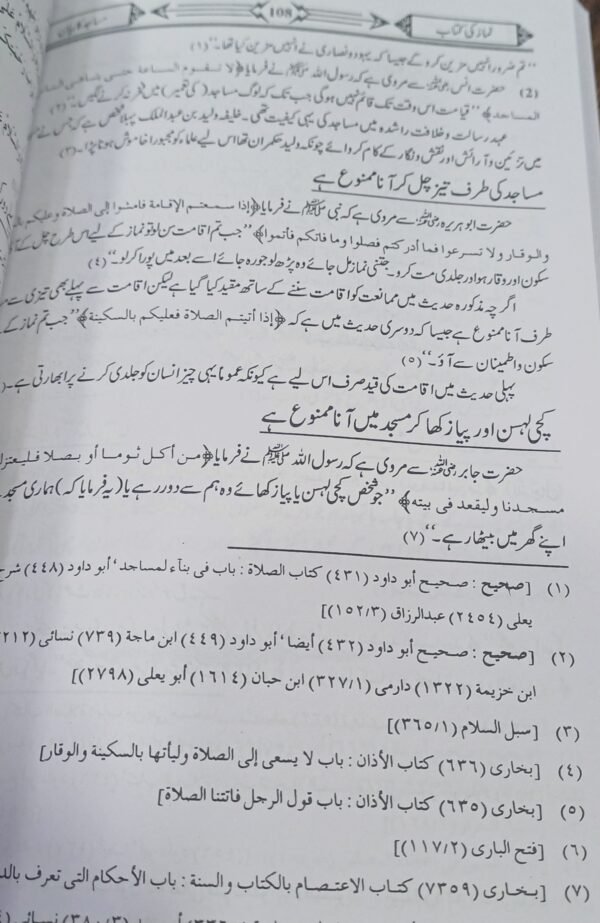 نماز کی کتاب
108
مساجد کا بیان
”تم ضرور انہیں مزین کرو گے جیسا کہ یہود و نصاریٰ نے انہیں مزین کیا تھا۔“ (۱)
(2) حضرت انس رضی اللہ عنہ سے مروی ہے کہ رسول اللہ ﷺ نے فرمایا ﴿لا تقوم الساعة حتى يتباهى الناس
المساجد﴾ ”قیامت اس وقت تک قائم نہیں ہوگی جب تک کہ لوگ مساجد (کی تعمیر) میں فخر نہ کرنے لگیں۔“ (۲)
عہد رسالت و خلافت راشدہ میں مساجد کی یہی کیفیت تھی۔ خلیفہ ولید بن عبد الملک پہلا شخص ہے کہ جس نے
میں تزئین و آرائش اور نقش و نگار کے کام کروائے چونکہ ولید حکمران تھا اس لیے علماء کو مجبورا خاموش ہونا پڑا۔ (۳)
مساجد کی طرف تیز چل کر آنا ممنوع ہے
حضرت ابو ہریرہ رضی اللہ عنہ سے مروی ہے کہ نبی ﷺ نے فرمایا ﴿إذا سمعتم الإقامة فامشوا إلى الصلاة وعليكم
والوقار ولا تسرعوا فما أدركتم فصلوا وما فاتكم فأتموا﴾ ”جب تم اقامت سن لو تو نماز کے لیے اس طرح چل کے
سکون اور وقار ہو اور جلدی مت کرو۔ جتنی نماز مل جائے وہ پڑھ لو جو رہ جائے اسے بعد میں پورا کر لو۔“ (٤)
اگرچہ مذکورہ حدیث میں ممانعت کو اقامت سننے کے ساتھ مقید کیا گیا ہے لیکن اقامت سے پہلے بھی تیزی سے
طرف آنا ممنوع ہے جیسا کہ دوسری حدیث میں ہے کہ ﴿إذا أتيتم الصلاة فعليكم بالسكينة﴾ ”جب تم نماز کے
سکون و اطمینان سے آؤ۔“ (٥)
پہلی حدیث میں اقامت کی قید صرف اس لیے ہے کیونکہ عموما یہی چیز انسان کو جلدی کرنے پر ابھارتی ہے۔
کچی لہسن اور پیاز کھا کر مسجد میں آنا ممنوع ہے
حضرت جابر رضی اللہ عنہ سے مروی ہے کہ رسول اللہ ﷺ نے فرمایا ﴿من أكل ثوما أو بصلا فليعتزلنا
مسجدنا وليقعد في بيته﴾ ”جو شخص کچی لہسن یا پیاز کھائے وہ ہم سے دور رہے یا (یہ فرمایا کہ) ہماری مسجد
اپنے گھر میں بیٹھا رہے۔“ (۷)
(۱) [صحیح : صحیح أبو داود (٤٣١) كتاب الصلاة : باب فى بناء لمساجد ‘ أبو داود (٤٤٨) شرح
يعلى (٢٤٥٤) عبدالرزاق (١٥٢/٣)]
(۲) [صحیح : صحیح أبو داود (٤٣٢) أيضا ‘ أبو داود (٤٤٩) ابن ماجة (٧٣٩) نسائى
ابن خزيمة (١٣٢٢) دارمى (٣٢٧/١) ابن حبان (١٦١٤) أبو يعلى (٢٧٩٨)]
(۳) [سبل السلام (٣٦٥/١)]
(٤) [بخارى (٦٣٦) كتاب الأذان : باب لا يسعى إلى الصلاة وليأتها بالسكينة والوقار]
(٥) [بخارى (٦٣٥) كتاب الأذان : باب قول الرجل فاتتنا الصلاة]
(٦) [فتح البارى (١١٧/٢)]
(۷) [بخارى (٧٣٥٩) كتاب الاعتصام بالكتاب والسنة : باب الأحكام التى تعرف